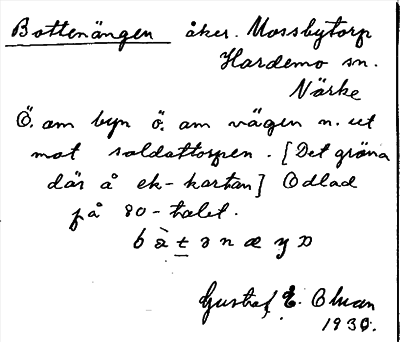 Bottenängen åker. Mossbytorp
Hardemo sn.
Närke
Ö. om byn ö. om vägen n. ut
mot soldattorpen. [Det gröna
där å ek-kartan] Odlad
på 80-talet.
Gustaf E. Ohman
1930.